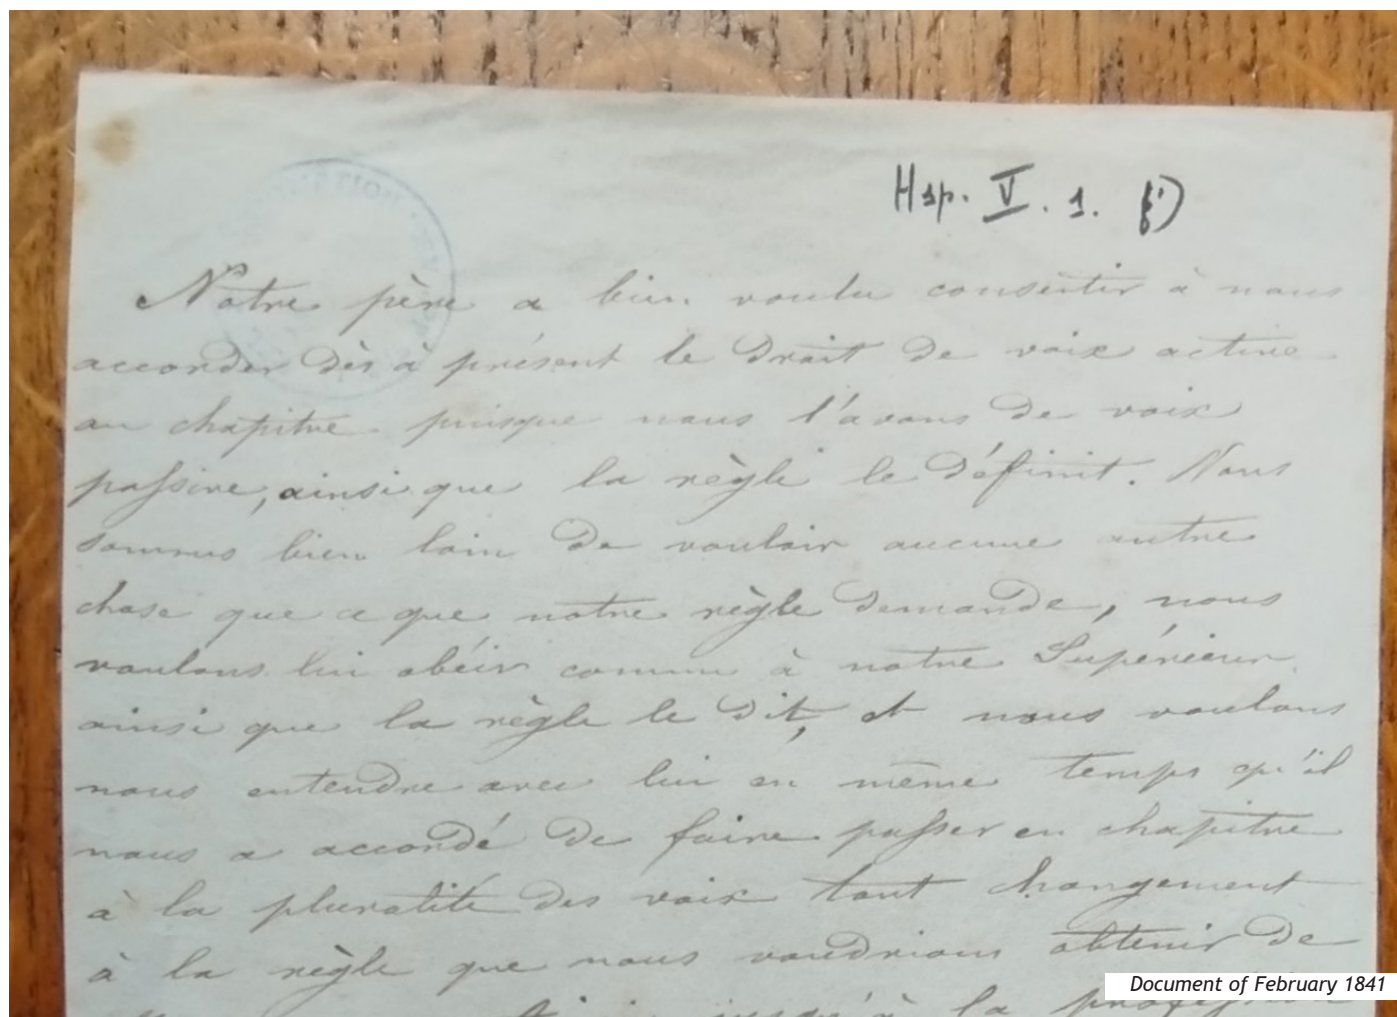 Hsp. V. 1.
Notre père a bien voulu consentir à nous
accorder dès à présent le droit de voix active
au chapitre puisque nous l'avons de voix
passive, ainsi que la règle le définit. Nous
sommes bien loin de vouloir aucune autre
chose que ce que notre règle demande, nous
voulons lui obéir comme à notre Supérieur
ainsi que la règle le dit, et nous voulons
nous entendre avec lui en même temps qu'il
nous a accordé de faire passer en chapitre
à la pluralité des voix tout changement
à la règle que nous voudrions obtenir de
jusqu'à la profession
Document of February 1841